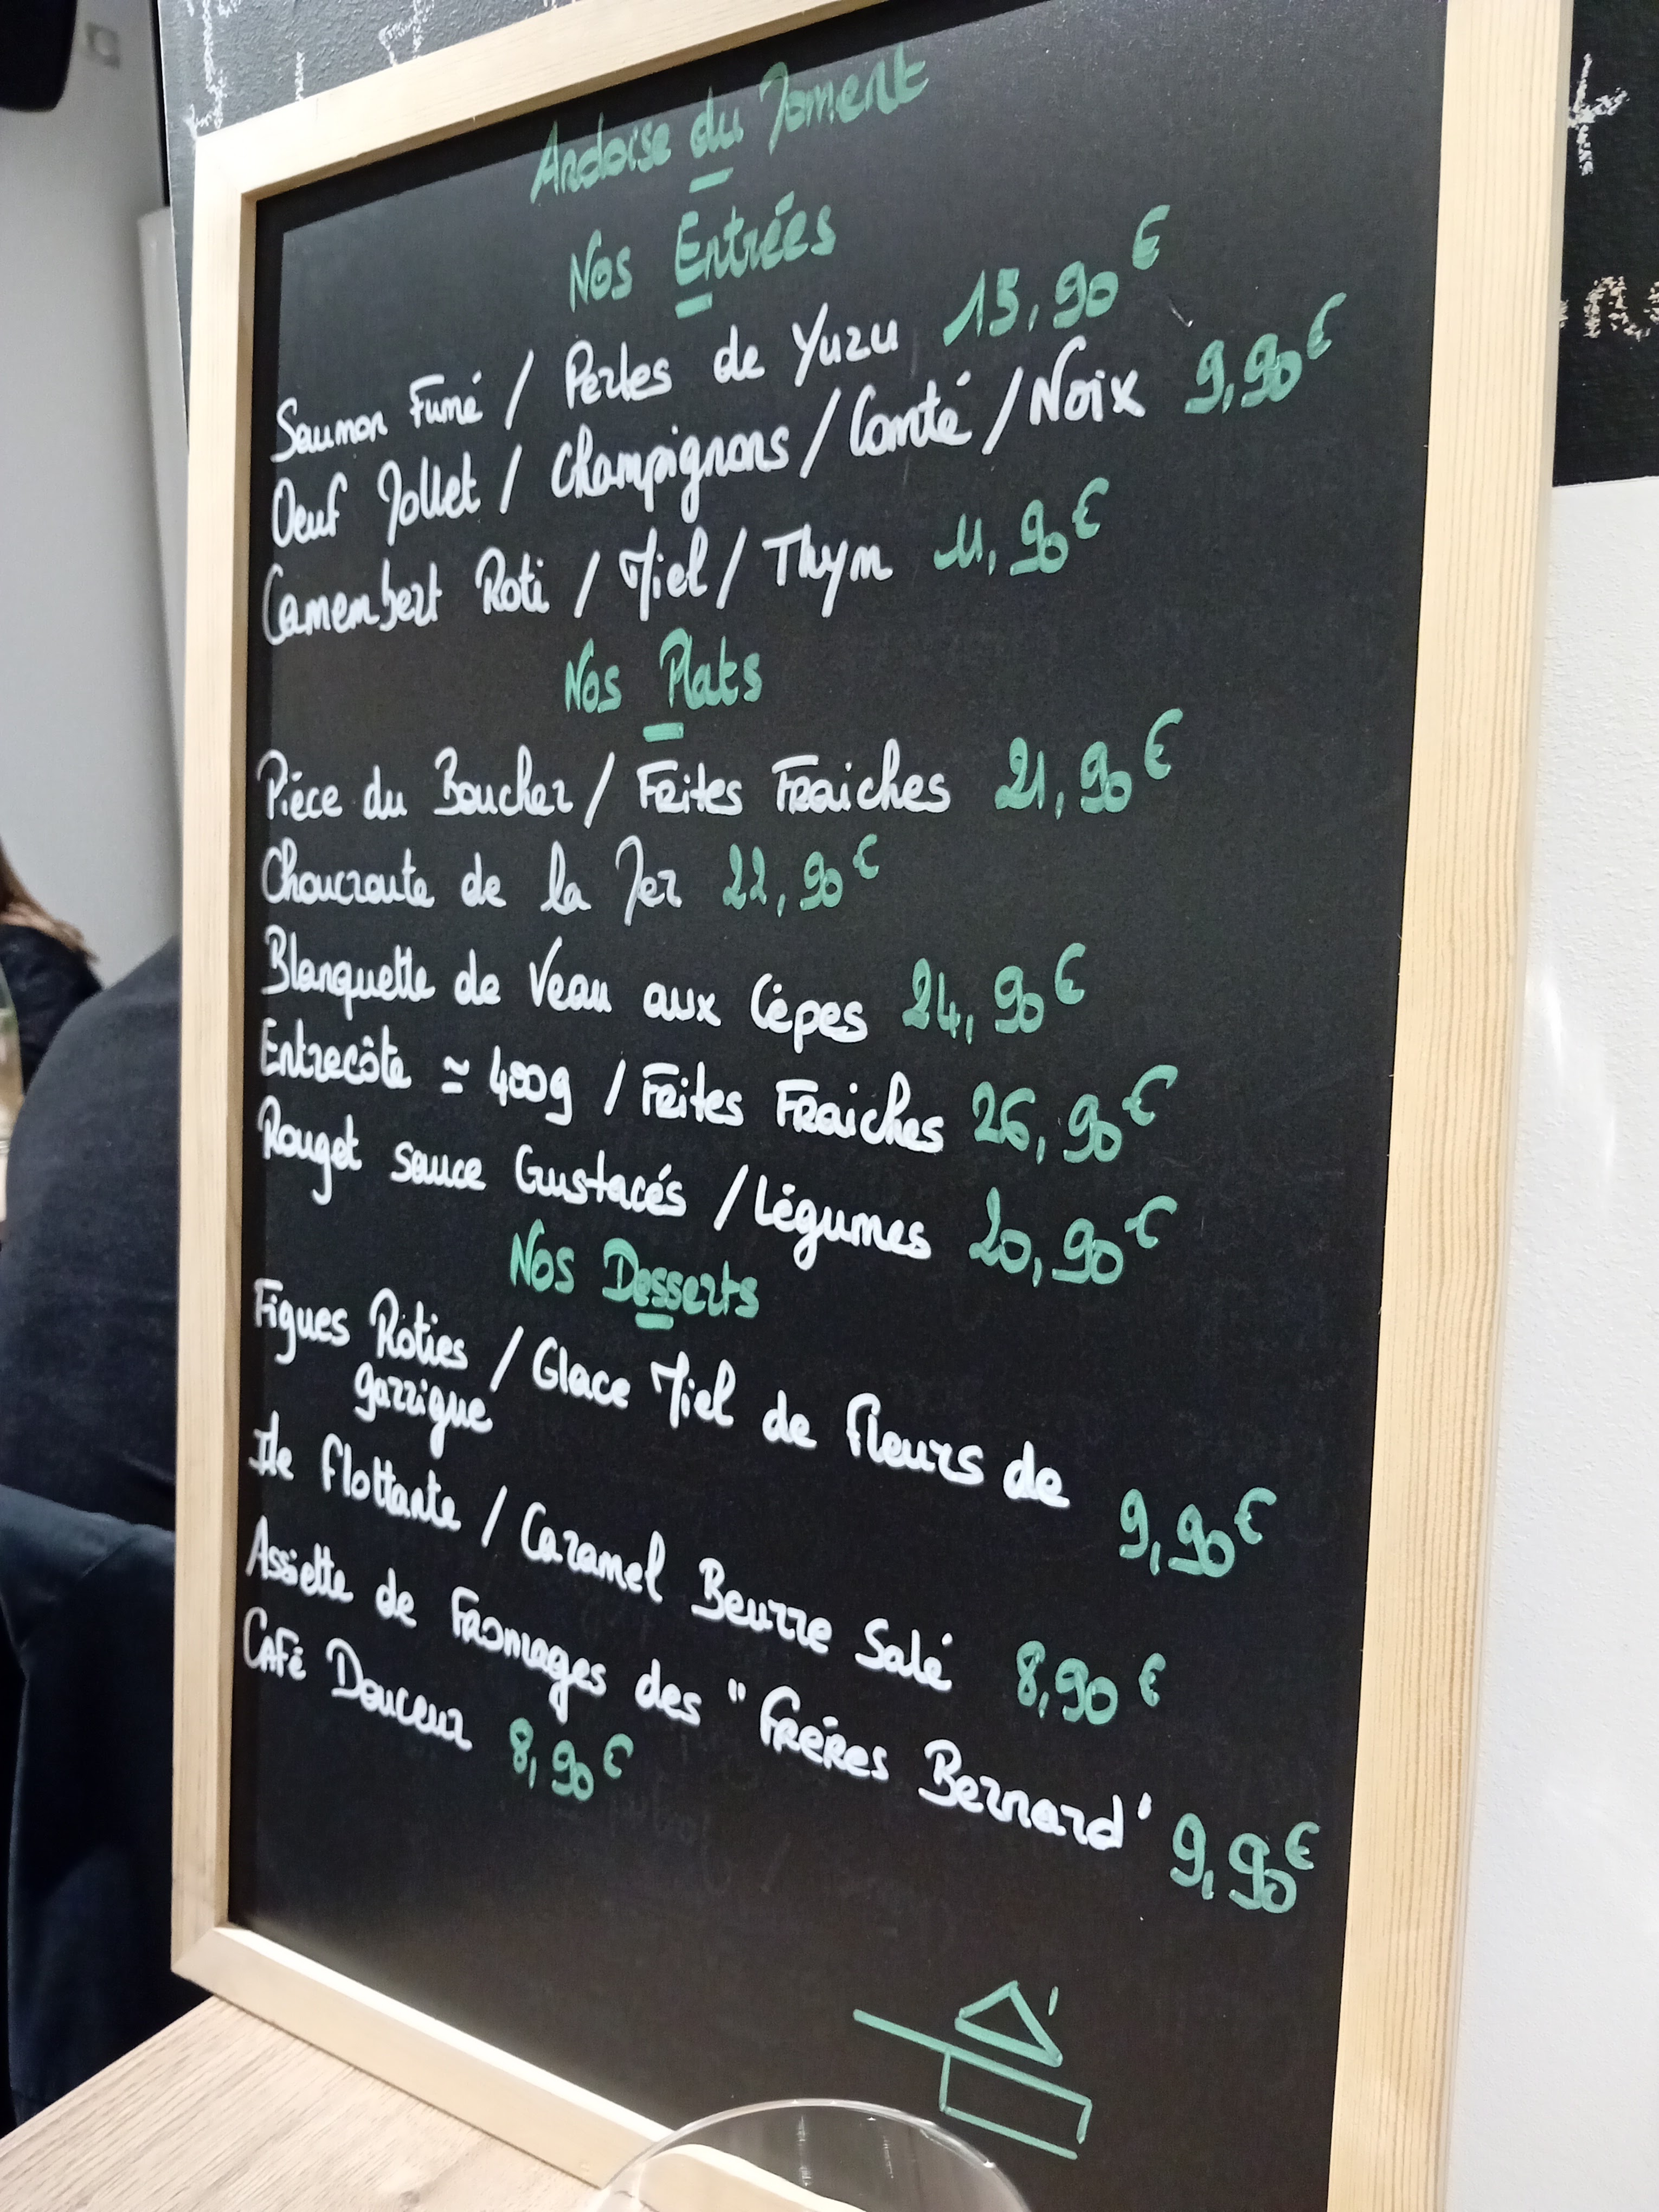 Ardoise du Moment
Nos Entrées
Saumon Fumé / Perles de Yuzu 15,90€
Oeuf Mollet / Champignons / Comté / Noix 9,90€
Camembert Roti / Miel / Thym 11,90€
Nos Plats
Pièce du Boucher / Frites Fraiches 21,90€
Choucroute de la Mer 22,90€
Blanquette de Veau aux Cèpes 24,90€
Entrecôte ≃ 400g / Frites Fraiches 26,90€
Rouget sauce Crustacés / Légumes 20,90€
Nos Desserts
Figues Rôties / Glace Miel de fleurs de
garrigue 9,90€
Ile flottante / Caramel Beurre Salé 8,90€
Assiette de Fromages des "Frères Bernard" 9,90€
Café Douceur 8,90€